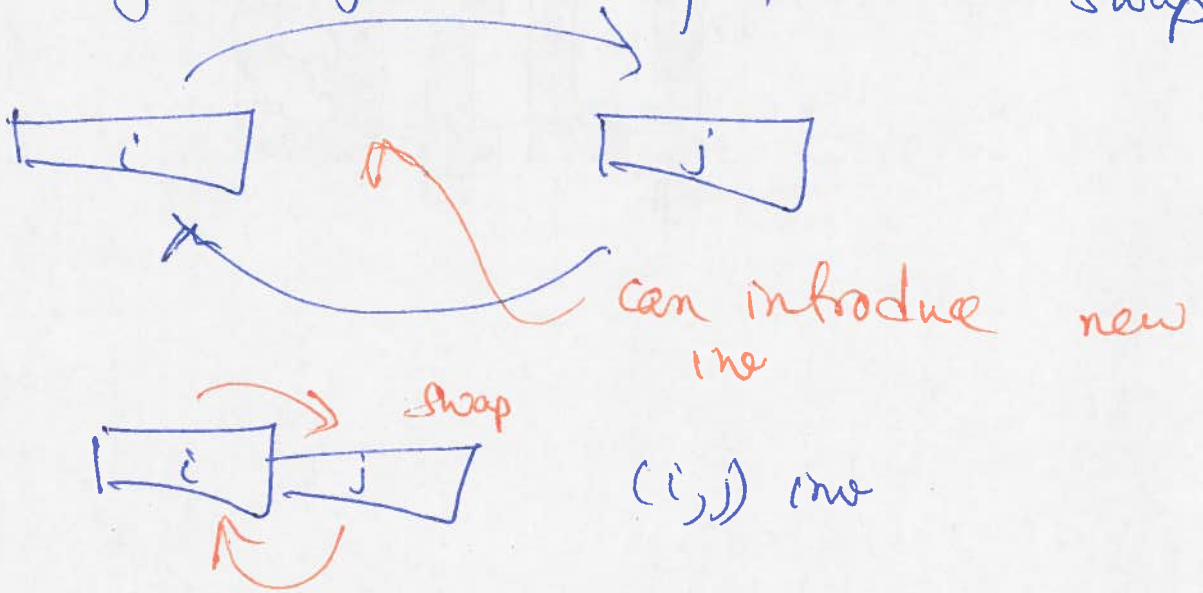 swap
i j
can introduce new
inv
swap
i j (i,j) inv